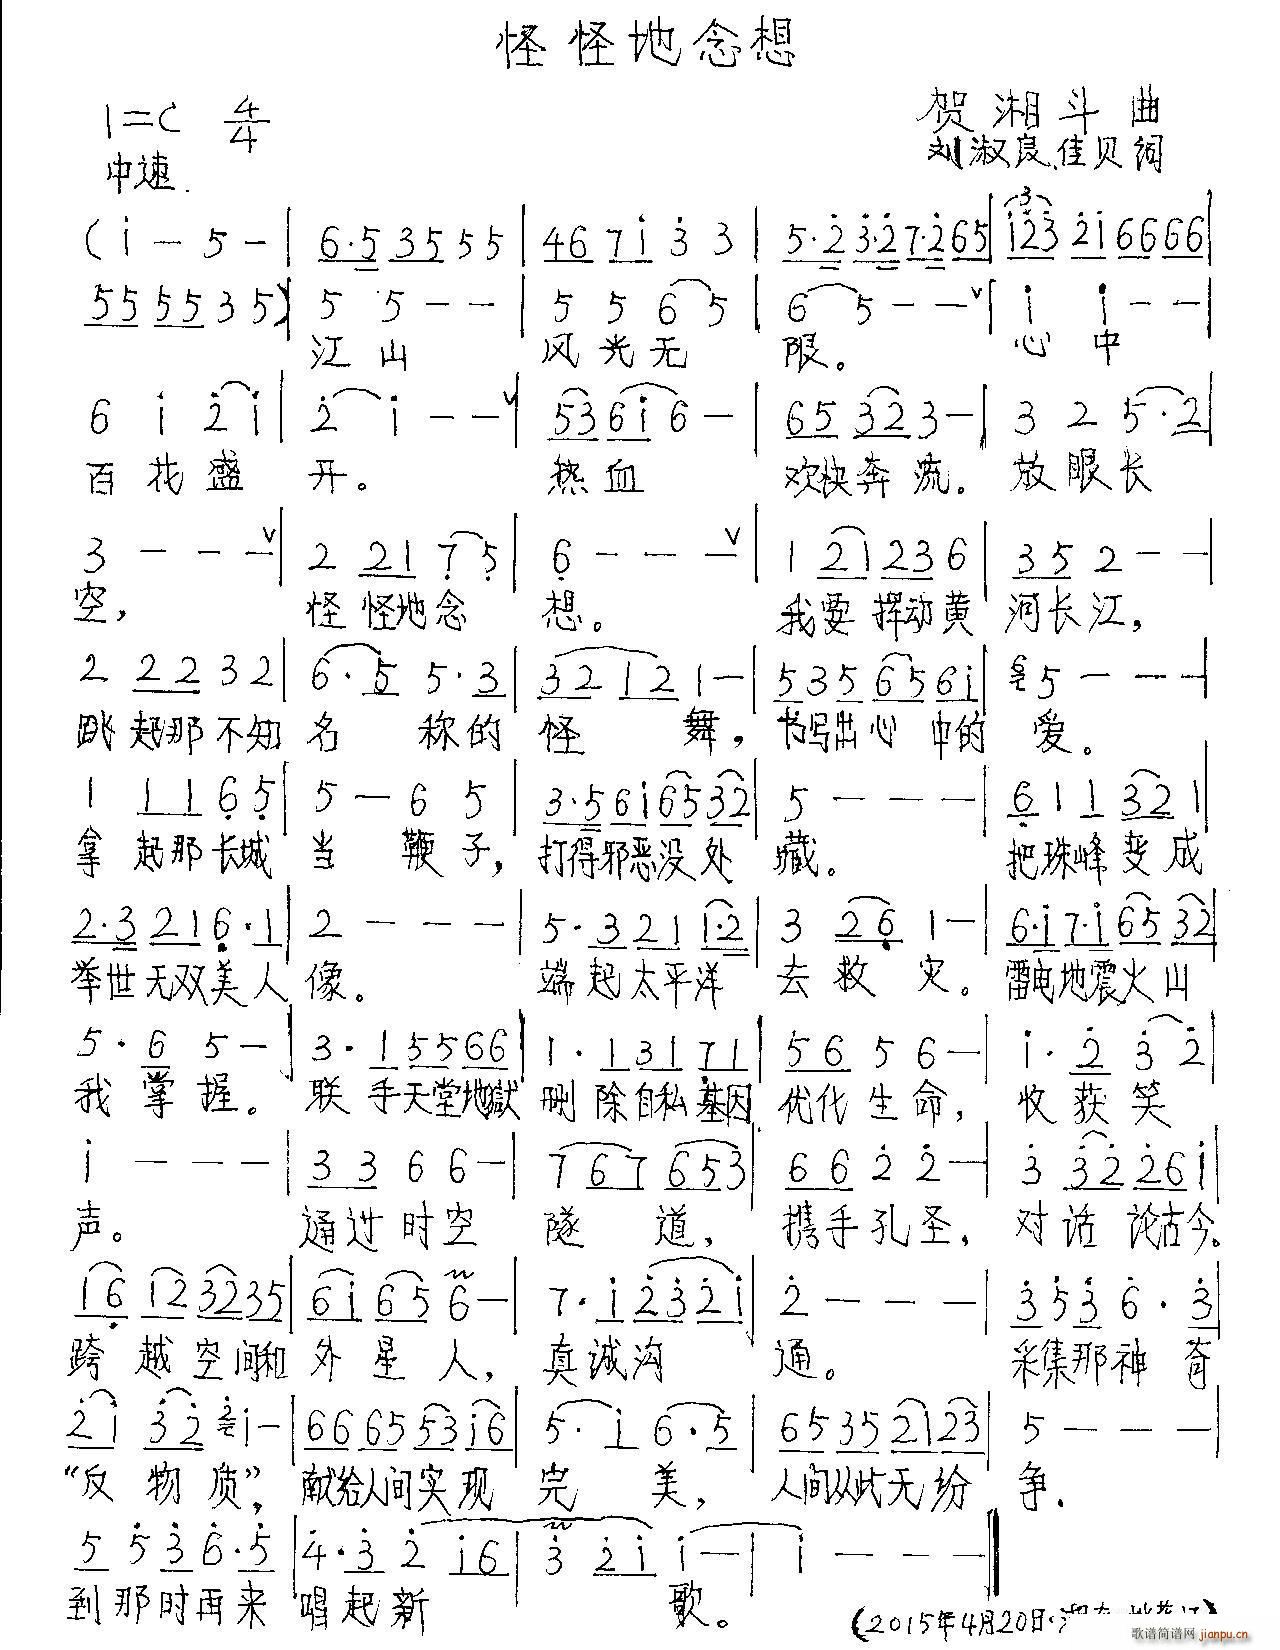 怪怪地念想
1=C 4/4
贺湘斗 曲
中速.
刘淑良、佳贝 词
(i — 5 — | 6·5 35 5 5 | 46 7i 3 3 | 5·2 3·2 7·2 65 | i23 2i 66 66 |
55 55 3 5) | 5 5 — — | 5 5 6 5 | 6 5 — — v | i i — — |
江山 风光无 限。 心中
6 i 2 i | 2 i — — v | 53 6i 6 — | 65 32 3 — | 3 2 5·2 |
百花盛 开。 热血 欢快奔流。 放眼长
3 — — — v | 2 21 7 5 | 6 — — — v | 1 21 23 6 | 35 2 — — |
空, 怪怪地念 想。 我要挥动黄 河长江,
2 22 3 2 | 6·5 5·3 | 32 12 1 — | 535 65 6i | 6 5 — — — |
跳起那不知 名称的 怪舞, 书写出心中的 爱。
1 11 6 5 | 5 — 6 5 | 3·5 6i 65 32 | 5 — — — | 6 1 1 32 1 |
拿起那长城 当鞭子, 打得邪恶没处 藏。 把珠峰变成
2·3 21 6·1 | 2 — — — | 5·3 21 1·2 | 3 26 1 — | 6·i 7·i 65 32 |
举世无双美人 像。 端起太平洋 去救灾。 雷电地震火山
5·6 5 — | 3·1 55 66 | 1·1 31 71 | 56 5 6 — | i·2 3 2 |
我掌握。 联手天堂地狱 删除自私基因 优化生命, 收获笑
i — — — | 33 6 6 — | 767 653 | 66 2 2 — | 3 32 26i |
声。 通过时空 隧道, 携手孔圣, 对话论古今。
16 12 32 35 | 6i 65 6 — | 7·i 23 2i | 2 — — — | 353 6·3 |
跨越空间和 外星人, 真诚沟 通。 采集那神奇
2i 32 2 i — | 66 65 53 i6 | 5·i 6·5 | 65 35 21 23 | 5 — — — |
“反物质”, 献给人间实现 完美, 人间从此无纷 争.
5 53 6·5 | 4·3 2 i6 | 3 2i i — | i — — — ‖
到那时再来 唱起新 歌。
(2015年4月20日·
歌谱简谱网
jianpu.cn